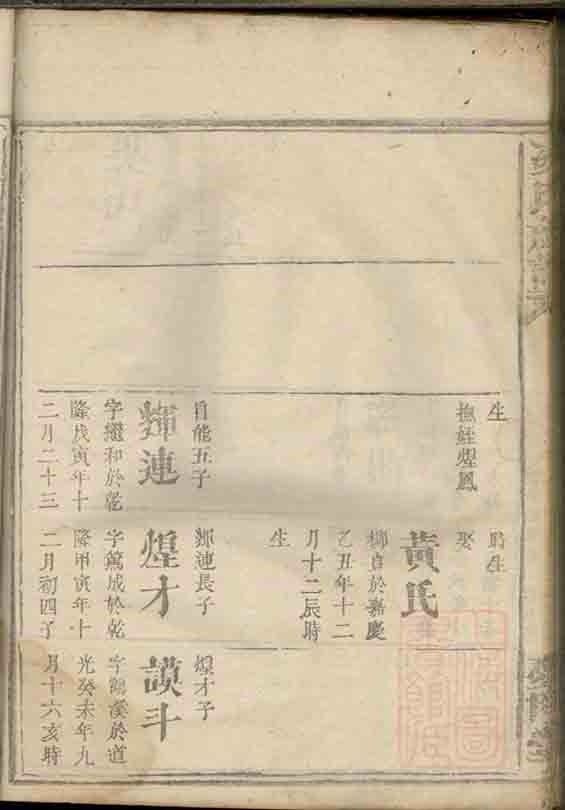 生
撫姪煌鳳
自能五子
輝連
字繼和於乾
隆戊寅年十
二月二十三
時生
娶
黃氏
柳貞於嘉慶
乙丑年十二
月十二辰時
生
輝連長子
煌才
字篤成於乾
隆甲寅年十
二月初四子
煌才子
謨斗
字鶴溪於道
光癸未年九
月十六亥時